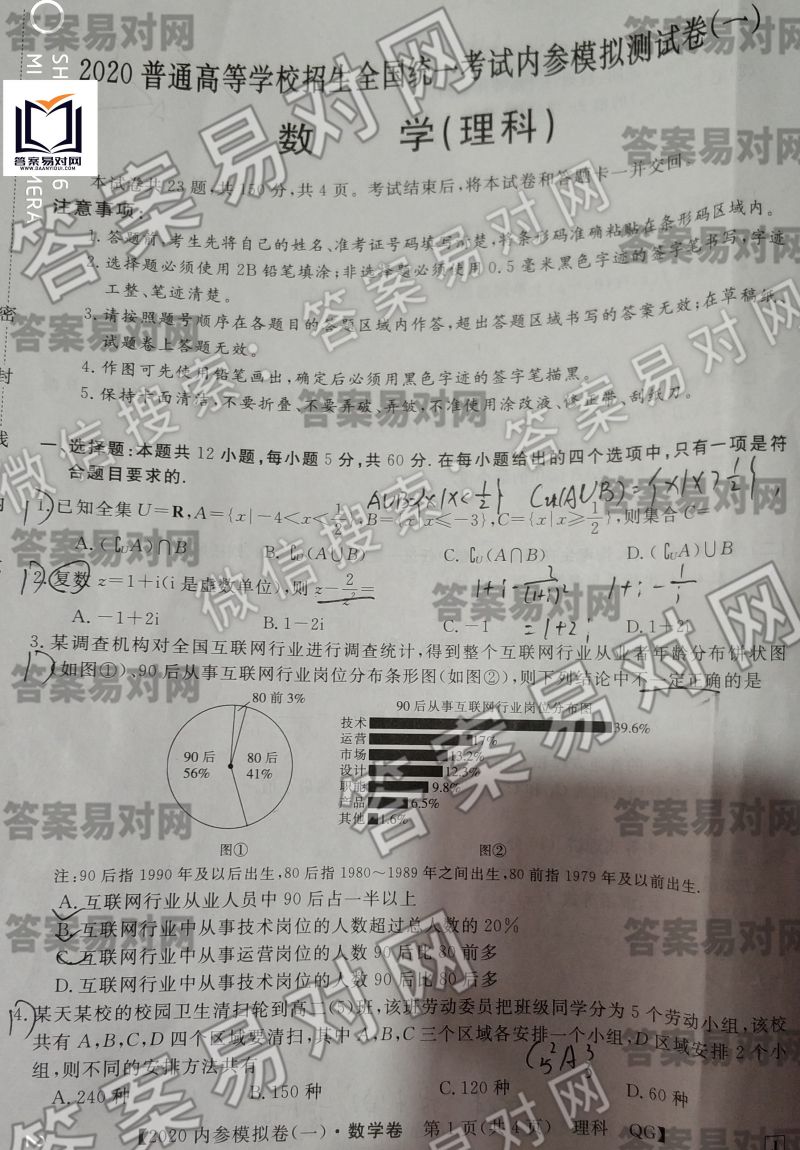 2020普通高等学校招生全国统一考试内参模拟测试卷(一)
数 学(理科)
本试卷共23题,共150分,共4页。考试结束后,将本试卷和答题卡一并交回。
注意事项:
1.答题前,考生先将自己的姓名、准考证号码填写清楚,将条形码准确粘贴在条形码区域内。
2.选择题必须使用2B铅笔填涂;非选择题必须使用0.5毫米黑色字迹的签字笔书写,字迹
工整、笔迹清楚。
3.请按照题号顺序在各题目的答题区域内作答,超出答题区域书写的答案无效;在草稿纸、
试题卷上答题无效。
4.作图可先使用铅笔画出,确定后必须用黑色字迹的签字笔描黑。
5.保持卡面清洁,不要折叠、不要弄破、弄皱,不准使用涂改液、修正带、刮纸刀。
密
封
线
一、选择题:本题共12小题,每小题5分,共60分.在每小题给出的四个选项中,只有一项是符
合题目要求的.
A∪B={x|x<1/2} C_U(A∪B)={x|x≥1/2},
1.已知全集U=R,A={x|-4<x<1/2},B={x|x≤-3},C={x|x≥1/2},则集合C=
A.(∁UA)∩B B.∁U(A∪B) C.∁U(A∩B) D.(∁UA)∪B
2.复数z=1+i(i是虚数单位),则z-2/z²=
1+i-2/(1+i)² 1+i-1/i
=1+2i
A.-1+2i B.1-2i C.-1 D.1+2i
3.某调查机构对全国互联网行业进行调查统计,得到整个互联网行业从业者年龄分布饼状图
(如图①)、90后从事互联网行业岗位分布条形图(如图②),则下列结论中不一定正确的是
80前3%
90后
56%
80后
41%
图①
90后从事互联网行业岗位分布图
技术 39.6%
运营 17%
市场 13.2%
设计 12.3%
职能 9.8%
产品 6.5%
其他 1.6%
图②
注:90后指1990年及以后出生,80后指1980~1989年之间出生,80前指1979年及以前出生.
A.互联网行业从业人员中90后占一半以上
B.互联网行业中从事技术岗位的人数超过总人数的20%
C.互联网行业中从事运营岗位的人数90后比80前多
D.互联网行业中从事技术岗位的人数90后比80后多
4.某天某校的校园卫生清扫轮到高二(5)班,该班劳动委员把班级同学分为5个劳动小组,该校
共有A,B,C,D四个区域要清扫,其中A,B,C三个区域各安排一个小组,D区域安排2个小
组,则不同的安排方法共有
A.240种 B.150种 C.120种 D.60种
【2020内参模拟卷(一)·数学卷 第1页(共4页) 理科 QG】
答案易对网
WWW.DAANYIDUI.COM
微信搜索:答案易对网